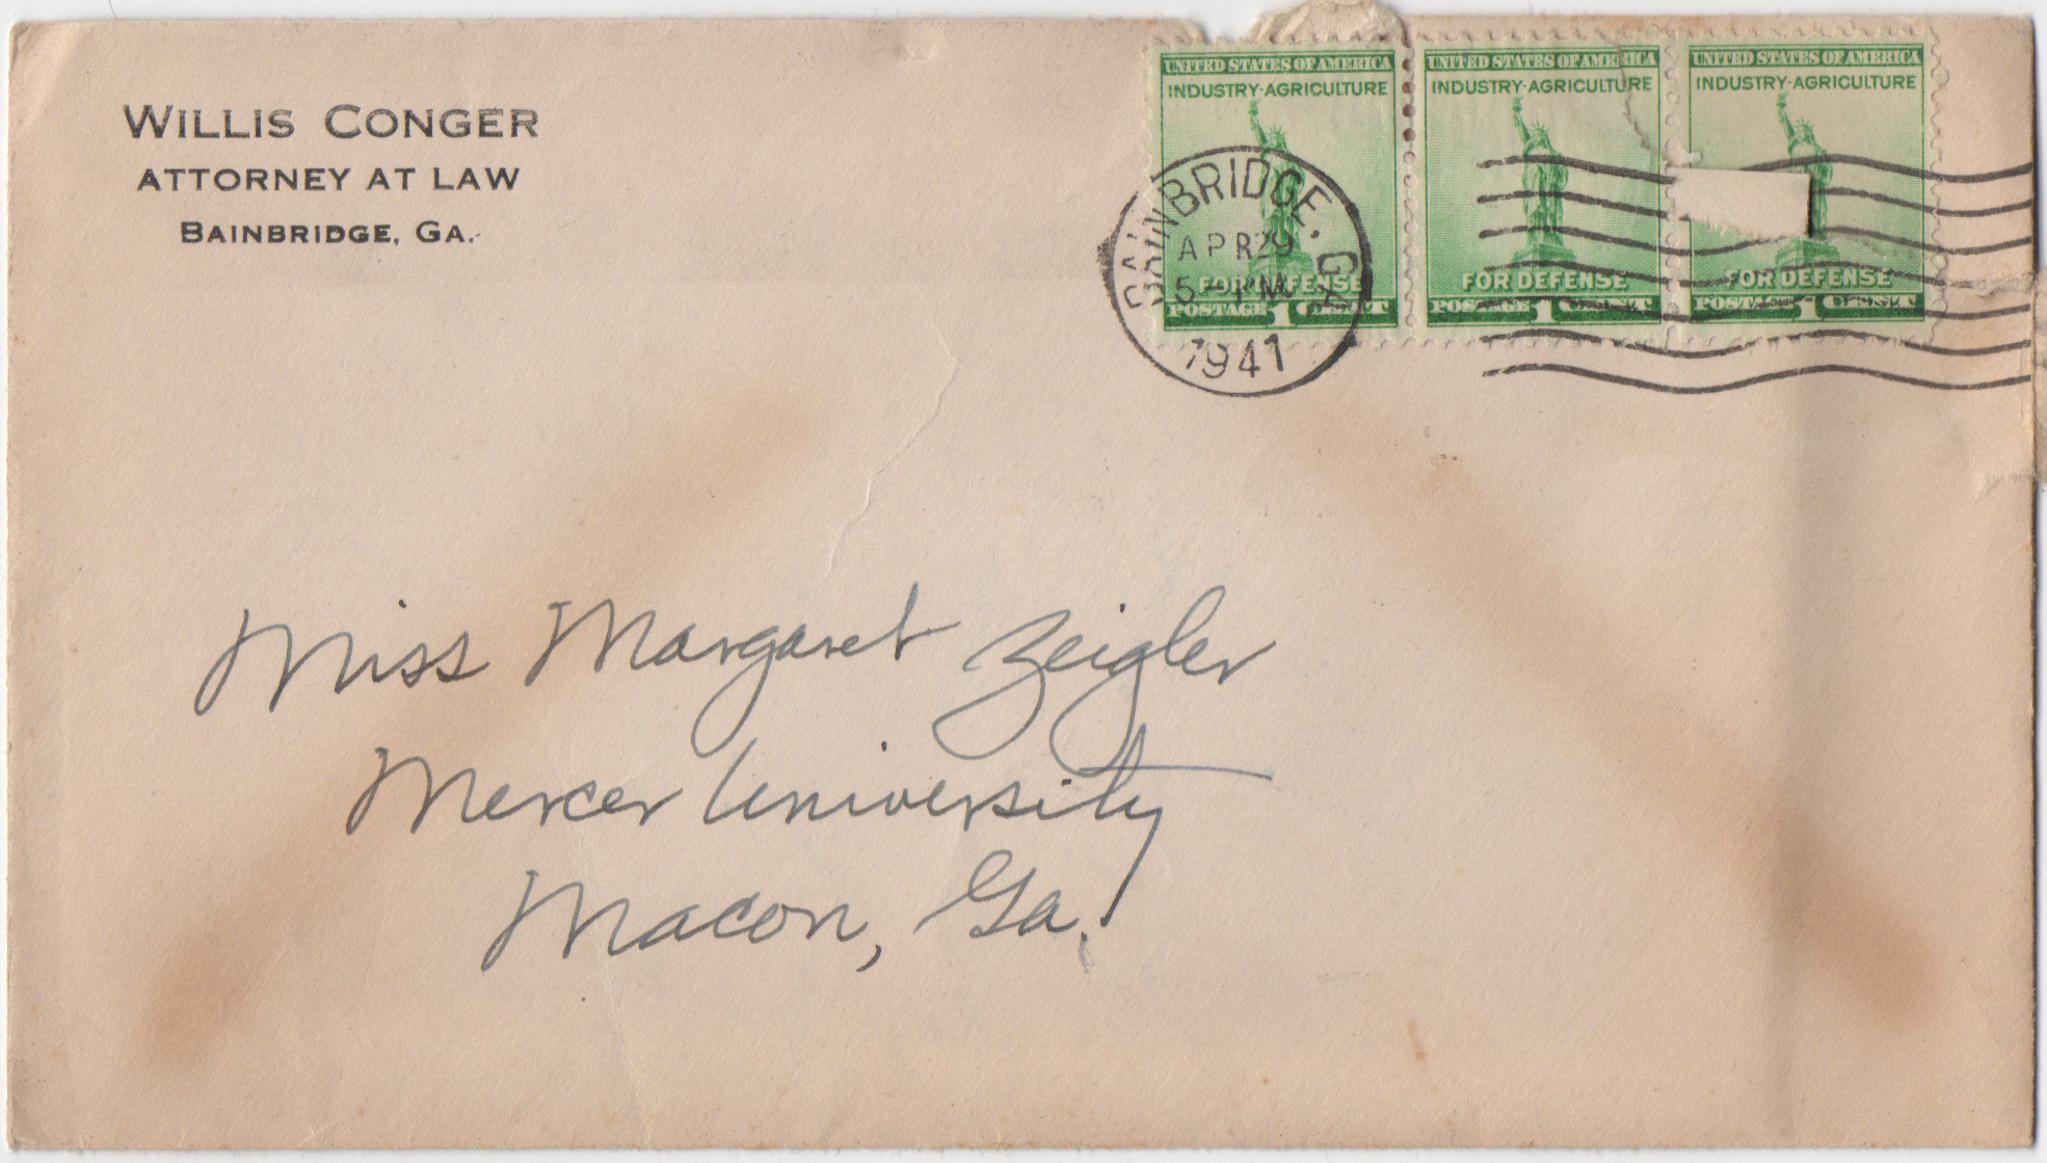 WILLIS CONGER
ATTORNEY AT LAW
BAINBRIDGE, GA.
UNITED STATES OF AMERICA
INDUSTRY-AGRICULTURE
FOR DEFENSE
POSTAGE 1 CENT
UNITED STATES OF AMERICA
INDUSTRY-AGRICULTURE
FOR DEFENSE
POSTAGE 1 CENT
UNITED STATES OF AMERICA
INDUSTRY-AGRICULTURE
FOR DEFENSE
POSTAGE 1 CENT
BAINBRIDGE, GA
APR 29
5 - PM
1941
Miss Margaret Zeigler
Mercer University
Macon, Ga.